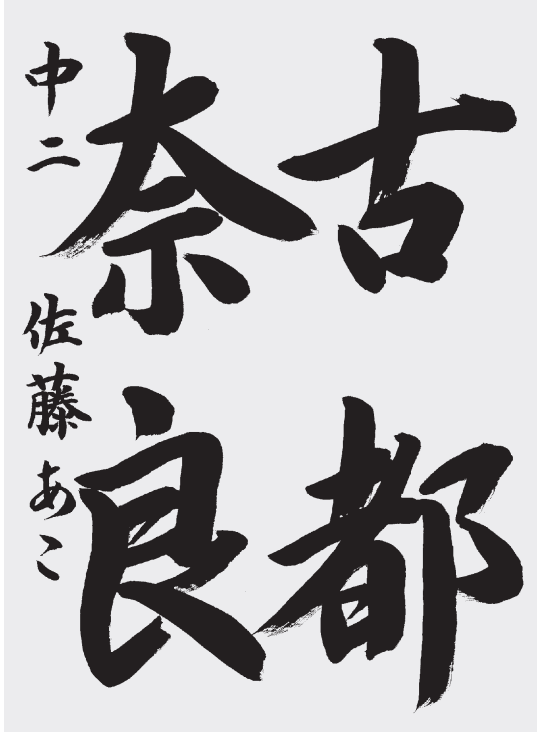 古都
奈良
中二 佐藤あこ